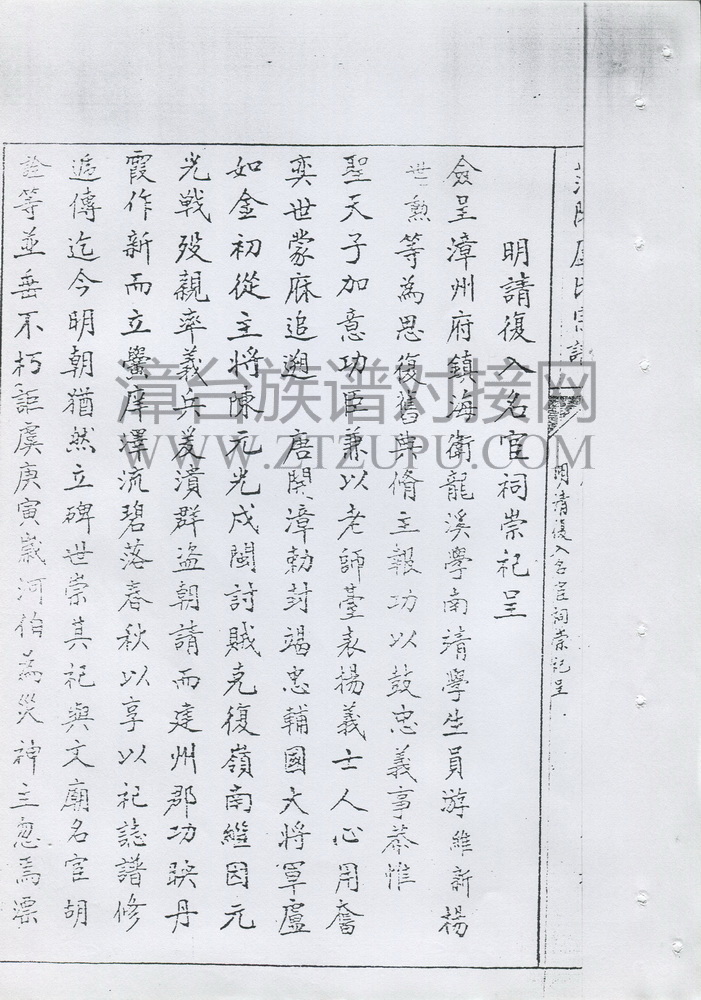 明請復入名宦祠崇祀呈
僉呈漳州府鎮海衛龍溪學南靖學生員游維新楊
世勲等為思復舊典脩主報功以鼓忠義事恭惟
聖天子加意功臣兼以老師臺表揚義士人心用奮
奕世蒙庥追遡 唐開漳勅封竭忠輔國大將軍盧
如金初從主將陳元光戍閩討賊克復嶺南繼因元
光戰殁親率義兵爰潰群盗朝請而建州郡功映丹
霞作新而立黌庠澤流碧落春秋以享以祀誌譜修
遞傳迄今明朝猶然立碑世崇其祀與文廟名宦胡
詮等並垂不朽詎虞庚寅歲河伯為災神主忽焉漂
盧氏宗譜
明請復入名宦祠崇祀呈
漳台族谱对接网
WWW.ZTZUPU.COM